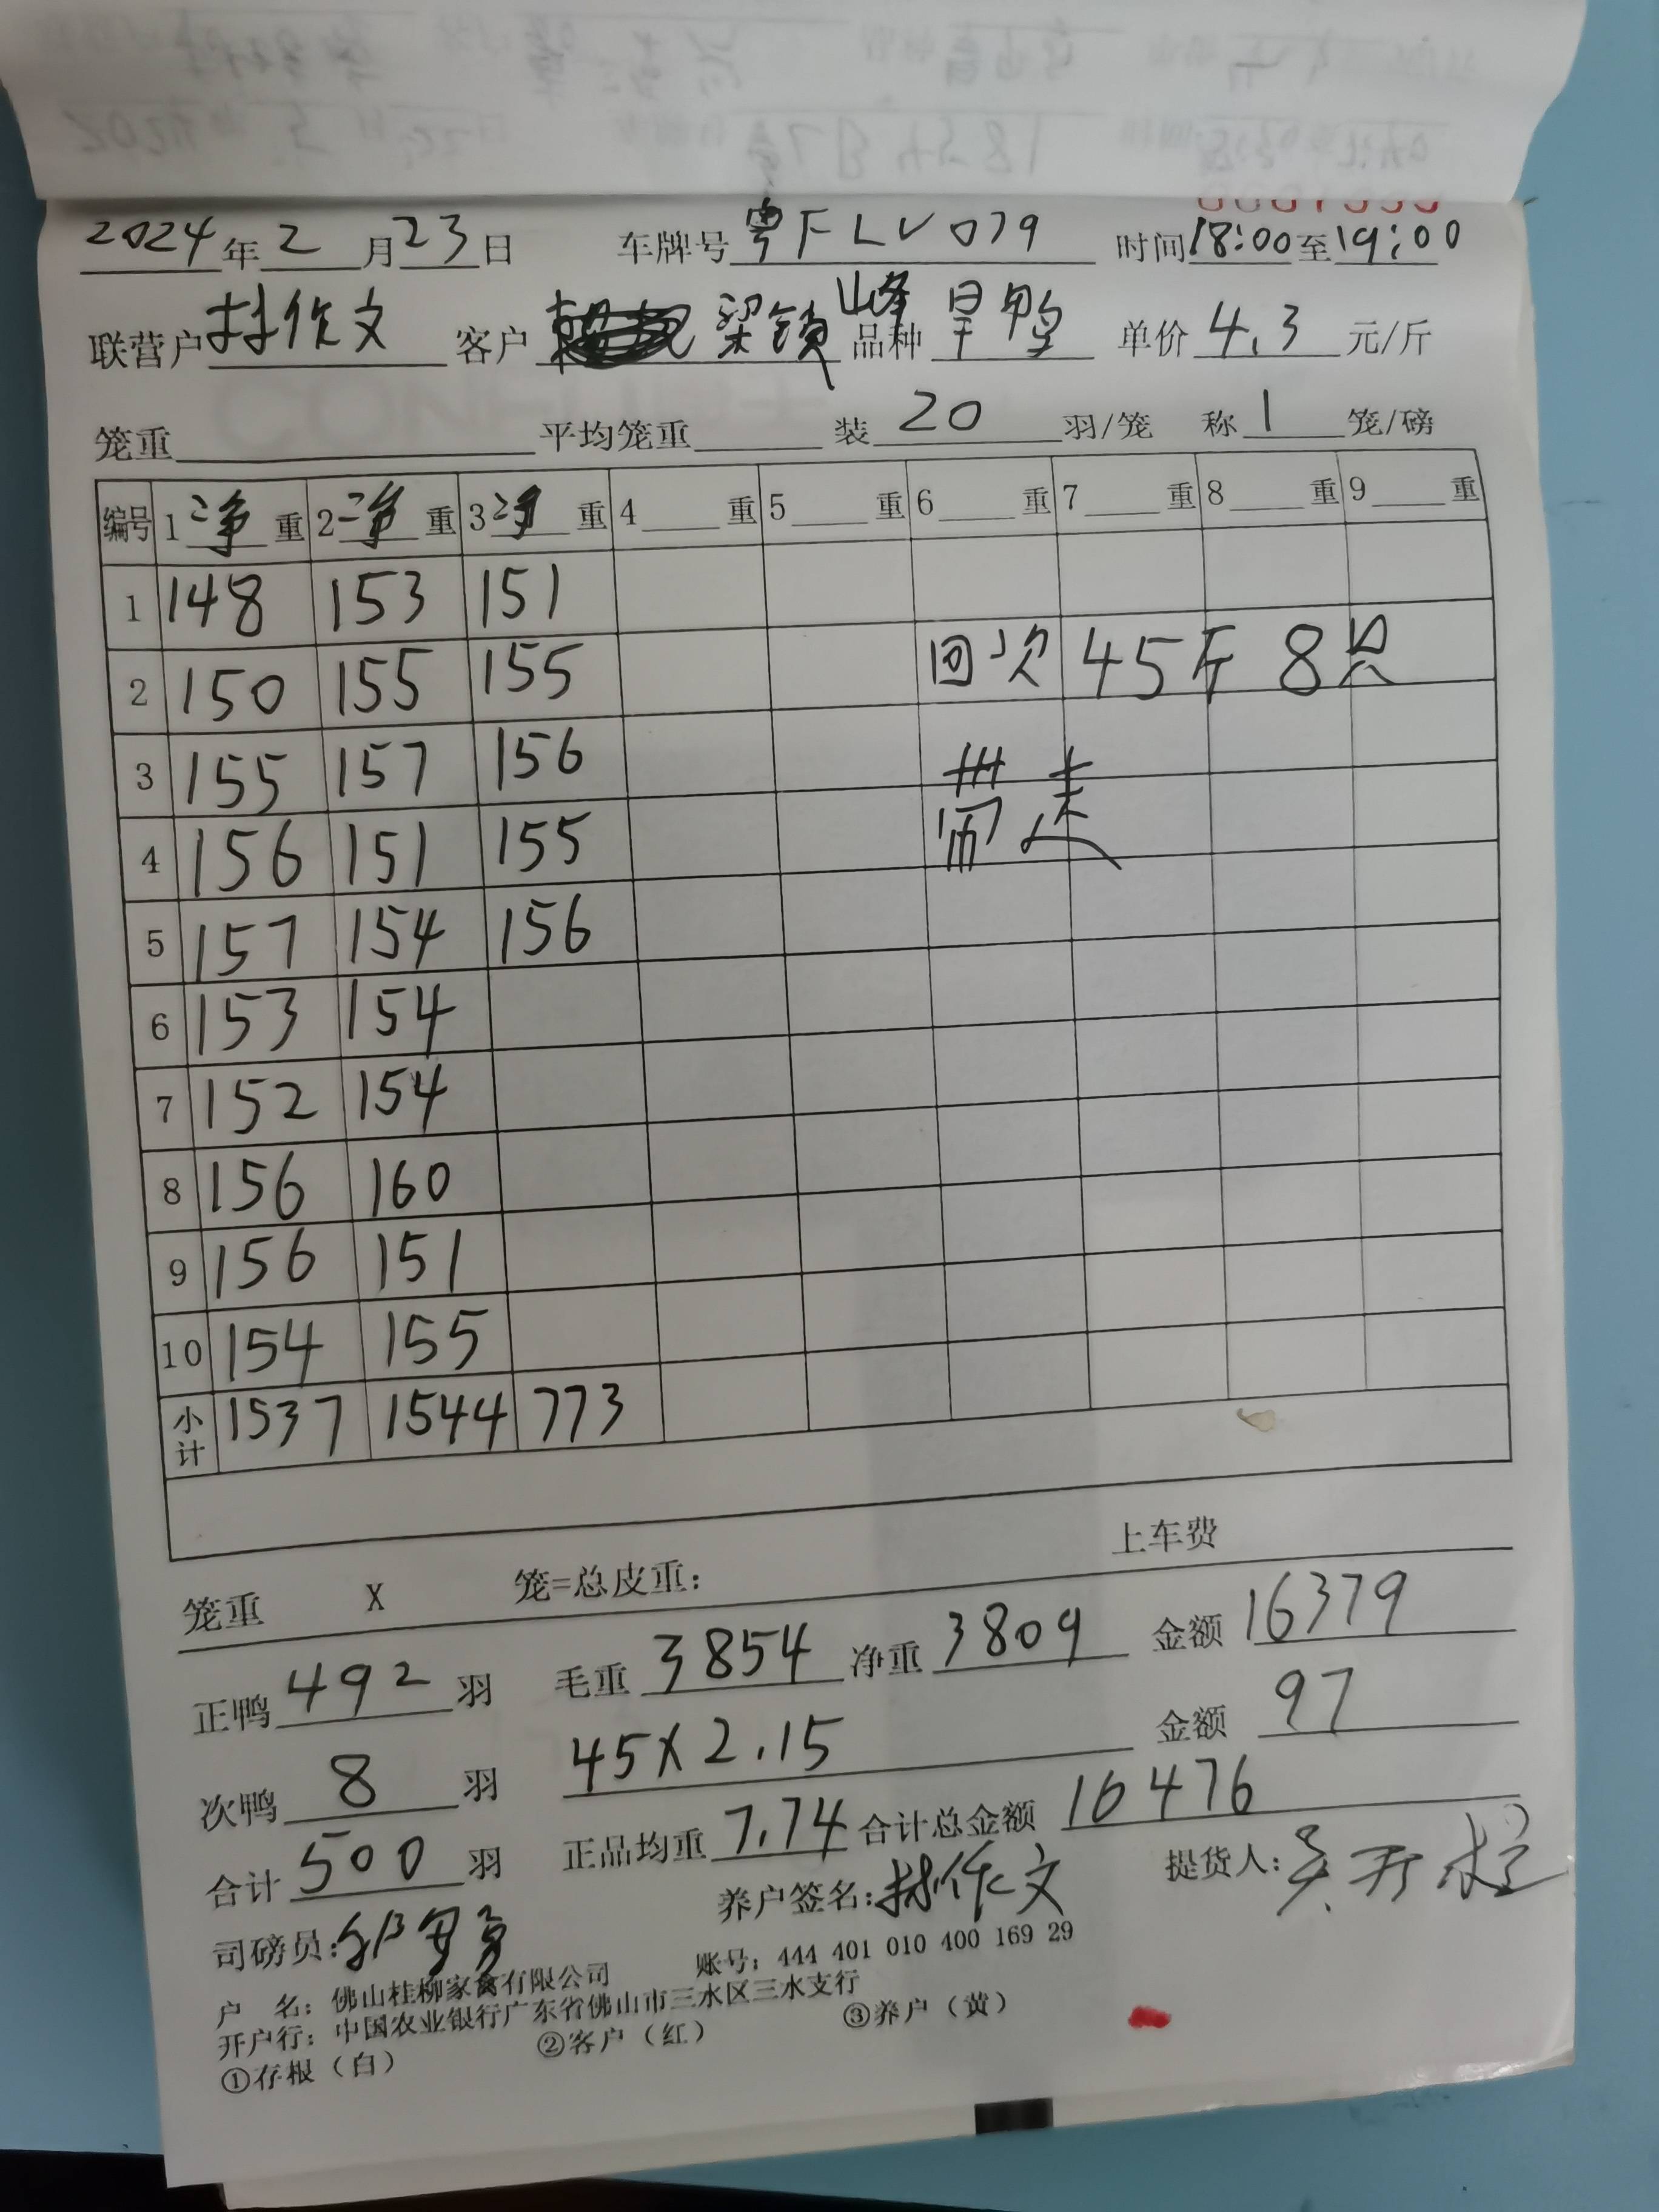 2024年2月23日 车牌号 粤FLV079 时间18:00至19:00
联营户 林作文 客户 梁锁峰 品种 旱鸭 单价 4.3 元/斤
笼重 平均笼重 装 20 羽/笼 称 1 笼/磅
编号 1 净 重 2 净 重 3 净 重 4 重 5 重 6 重 7 重 8 重 9 重
1 148 153 151
2 150 155 155 回次 45斤 8只
3 155 157 156 带走
4 156 151 155
5 157 154 156
6 153 154
7 152 154
8 156 160
9 156 151
10 154 155
小计 1537 1544 773
上车费
笼重 X 笼=总皮重:
正鸭 492 羽 毛重 3854 净重 3809 金额 16379
次鸭 8 羽 45×2.15 金额 97
合计 500 羽 正品均重 7.74 合计总金额 16476
司磅员: 养户签名: 林作文 提货人:
户 名: 佛山桂柳家禽有限公司 账号: 444 401 010 400 169 29
开户行: 中国农业银行广东省佛山市三水区三水支行
①存根（白） ②客户（红） ③养户（黄）